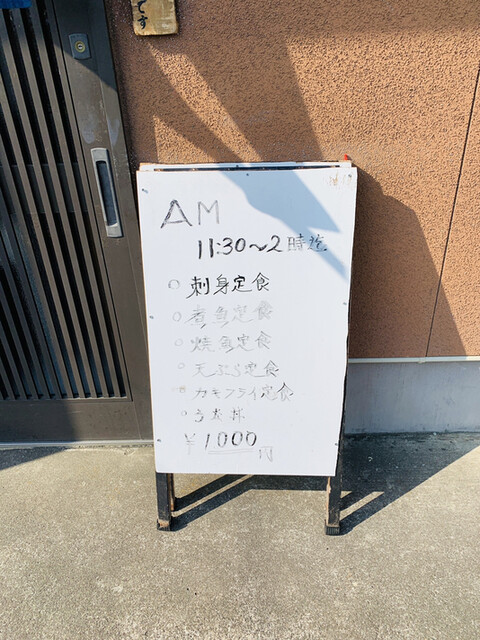 です
AM
11:30～2時迄
○刺身定食
○煮魚定食
○焼魚定食
○天ぷら定食
○カキフライ定食
○うな丼
¥1000円